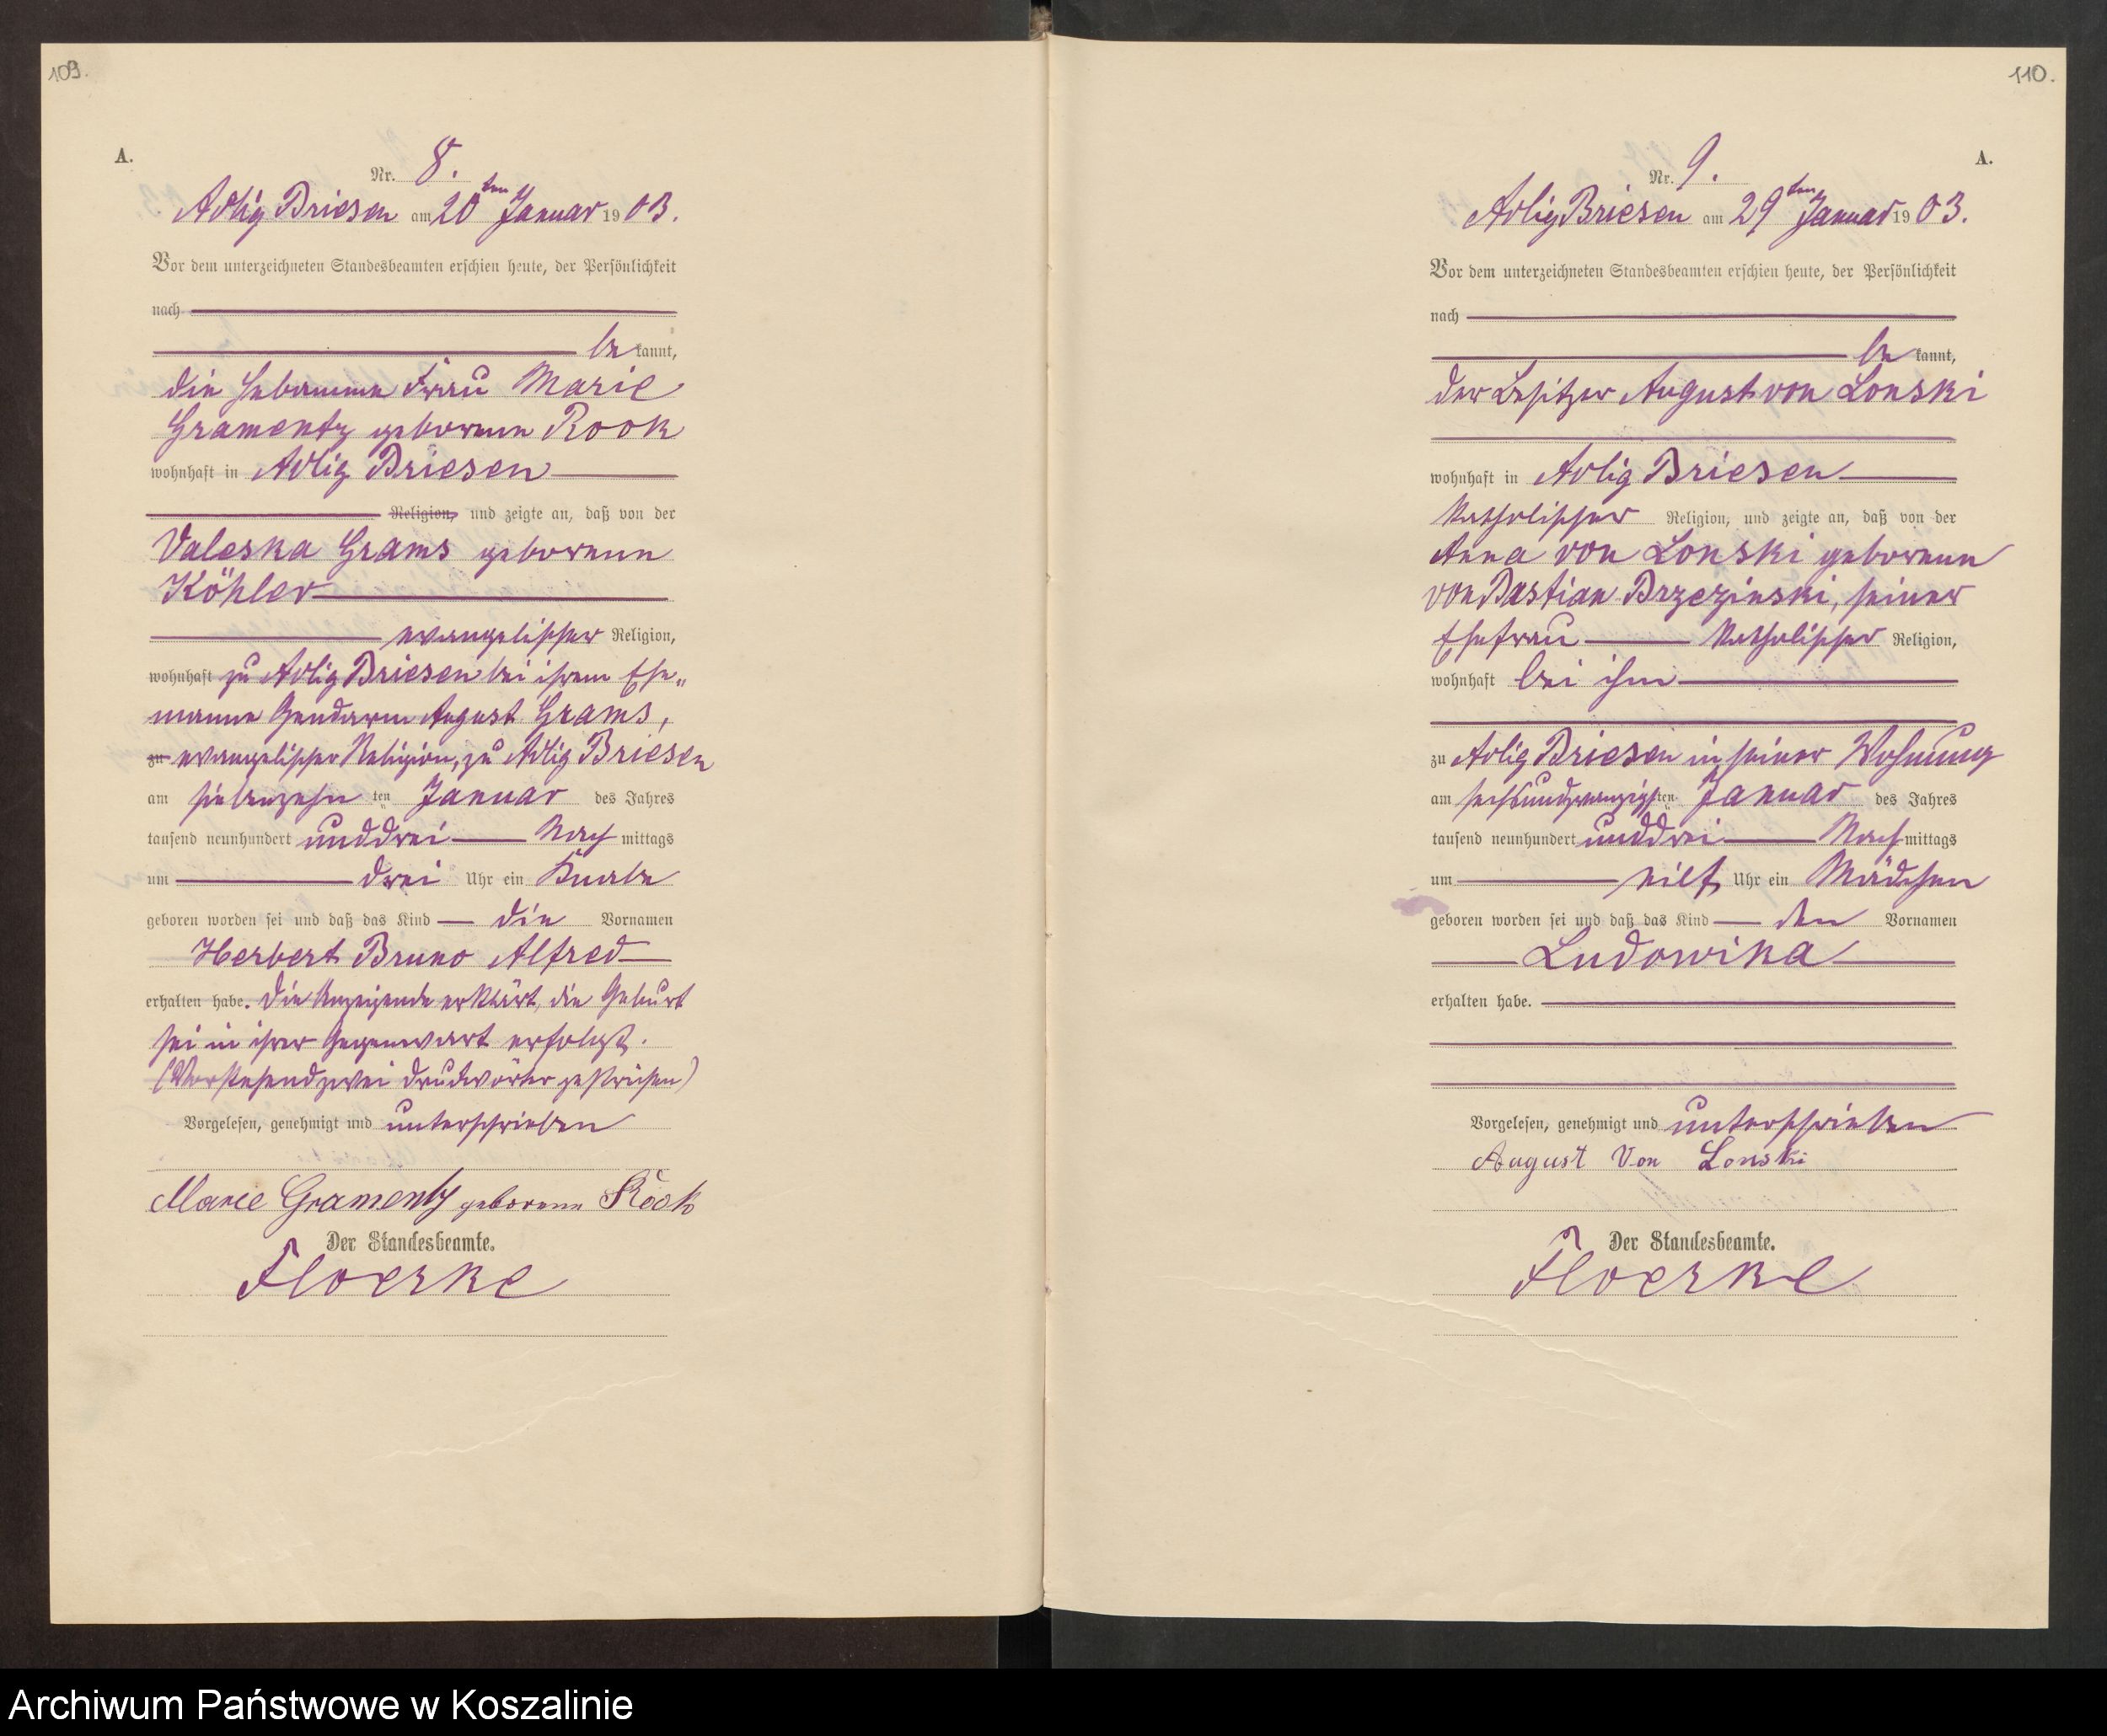 109.
A.
Nr. 8.
Adlig Briesen am 20ten Januar 1903.
Vor dem unterzeichneten Standesbeamten erschien heute, der Persönlichkeit
nach
be kannt,
die Hebamme Frau Marie
Gramentz geborenen Rook
wohnhaft in Adlig Briesen
Religion, und zeigte an, daß von der
Valeska Grams geborenen
Köhler
evangelischer Religion,
wohnhaft zu Adlig Briesen bei ihrem Ehe„
manne Gendarm August Grams,
zu evangelischer Religion, zu Adlig Briesen
am siebenzehn ten Januar des Jahres
tausend neunhundert unddrei Nach mittags
um drei Uhr ein Knabe
geboren worden sei und daß das Kind die Vornamen
Herbert Bruno Alfred
erhalten habe. Die Anzeigende erklärt, die Geburt
sei in ihrer Gegenwart erfolgt.
(Vorstehend zwei Druckwörter gestrichen)
Vorgelesen, genehmigt und unterschrieben
Marie Gramentz geborene Rook
Der Standesbeamte.
Floerke
110.
A.
Nr. 9.
Adlig Briesen am 29ten Januar 1903.
Vor dem unterzeichneten Standesbeamten erschien heute, der Persönlichkeit
nach
be kannt,
der Besitzer August von Lonski
wohnhaft in Adlig Briesen
katholischer Religion, und zeigte an, daß von der
Anna von Lonski geborenen
von Pastian Brzezinski, seiner
Ehefrau katholischer Religion,
wohnhaft bei ihm
zu Adlig Briesen in seiner Wohnung
am sechsundzwanzigsten Januar des Jahres
tausend neunhundert unddrei Nach mittags
um eilf Uhr ein Mädchen
geboren worden sei und daß das Kind den Vornamen
Ludowika
erhalten habe.
Vorgelesen, genehmigt und unterschrieben
August Von Lonski
Der Standesbeamte.
Floerke
Archiwum Państwowe w Koszalinie